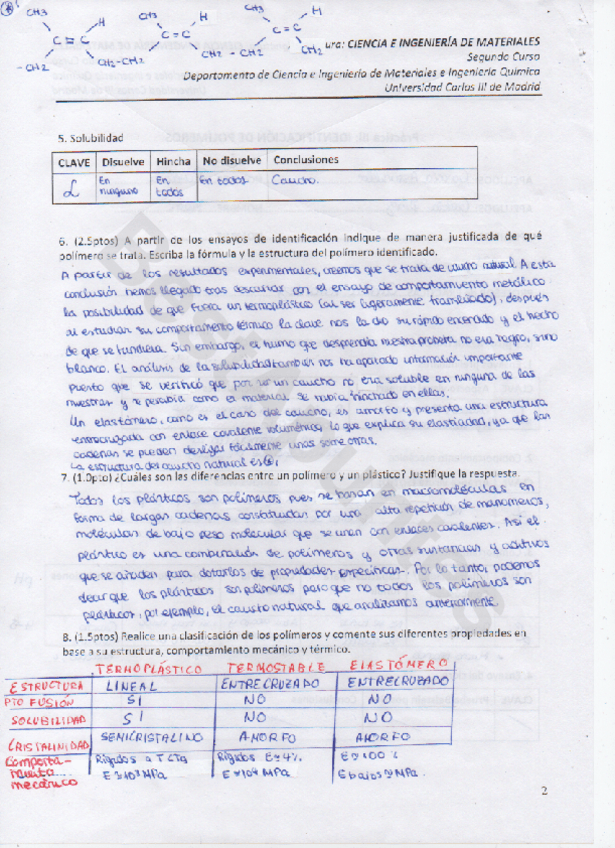 CH3 H CH3 H CH3 H
C = C C = C C = C
-CH2 CH2-CH2 CH2 - CH2 CH2-
ura: CIENCIA E INGENIERÍA DE MATERIALES
Segundo Curso
Departamento de Ciencia e Ingeniería de Materiales e Ingeniería Química
Universidad Carlos III de Madrid
5. Solubilidad
CLAVE Disuelve Hincha No disuelve Conclusiones
L En ninguno En todos En todos Caucho.
6. (2.5ptos) A partir de los ensayos de identificación indique de manera justificada de qué
polímero se trata. Escriba la fórmula y la estructura del polímero identificado.
A partir de los resultados experimentales, creemos que se trata de caucho natural. A esta
conclusión hemos llegado tras descartar con el ensayo de comportamiento metálico
la posibilidad de que fuera un termoplástico (al ser ligeramente translúcido), después
al estudiar su comportamiento térmico la clave nos la dio su rápido encendido y el hecho
de que se fundiera. Sin embargo, el humo que desprendía nuestra probeta no era negro, sino
blanco. El análisis de la solubilidad también nos ha aportado información importante
puesto que se verificó que por ser un caucho no era soluble en ninguna de las
muestras y se percibía como el material se había hinchado en ellas.
Un elastómero, como es el caso del caucho, es amorfo y presenta una estructura
entrecruzada con enlace covalente volumétrico, lo que explica su elasticidad, ya que las
cadenas se pueden deslizar fácilmente unas sobre otras.
La estructura del caucho natural es
7. (1.0pto) ¿Cuáles son las diferencias entre un polímero y un plástico? Justifique la respuesta.
Todos los plásticos son polímeros pues se basan en macromoléculas en
forma de largas cadenas constituidas por una alta repetición de monómeros,
moléculas de bajo peso molecular que se unen con enlaces covalentes. Así el
plástico es una combinación de polímeros y otras sustancias y aditivos
que se añaden para dotarlos de propiedades específicas. Por lo tanto, podemos
decir que los plásticos son polímeros pero que no todos los polímeros son
plásticos, por ejemplo, el caucho natural que analizamos anteriormente.
8. (1.5ptos) Realice una clasificación de los polímeros y comente sus diferentes propiedades en
base a su estructura, comportamiento mecánico y térmico.
TERMOPLÁSTICO TERMOSTABLE ELASTÓMERO
ESTRUCTURA LINEAL ENTRECRUZADO ENTRECRUZADO
PTO FUSIÓN SI NO NO
SOLUBILIDAD SI NO NO
CRISTALINIDAD SEMICRISTALINO AMORFO AMORFO
Comportamiento mecánico Rígidos a T cta Rígidos